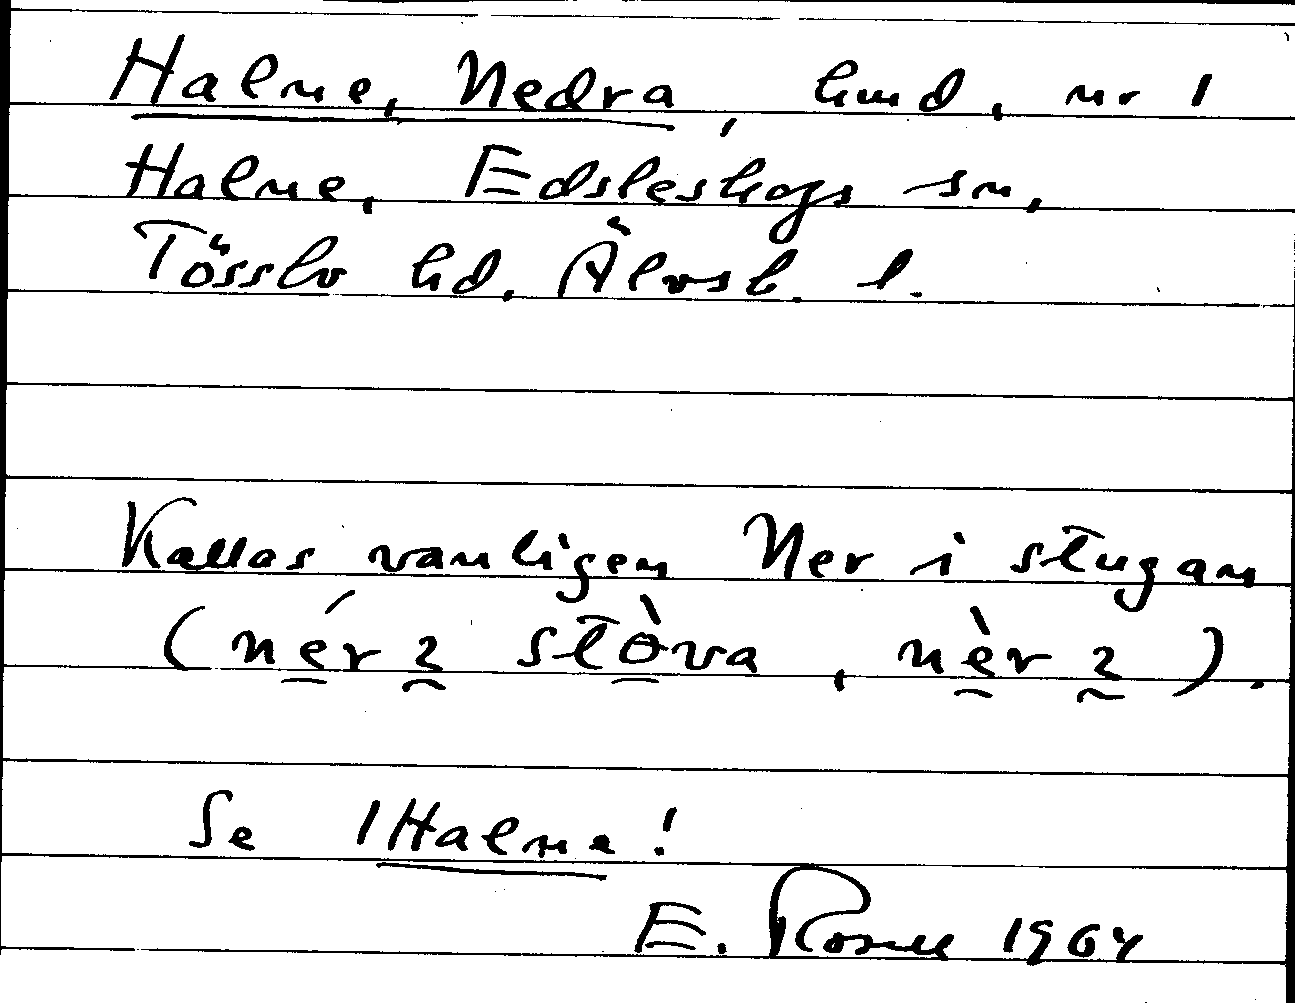 Halne, Nedra, hmd, nr 1
Halne, Edsleskogs sn,
Tössbo hd. Älvsb. l.
Kallas vanligen Ner i stugan
(nér 2 stòva, nèr 2).
Se 1 Halne!
E. Rosell 1964